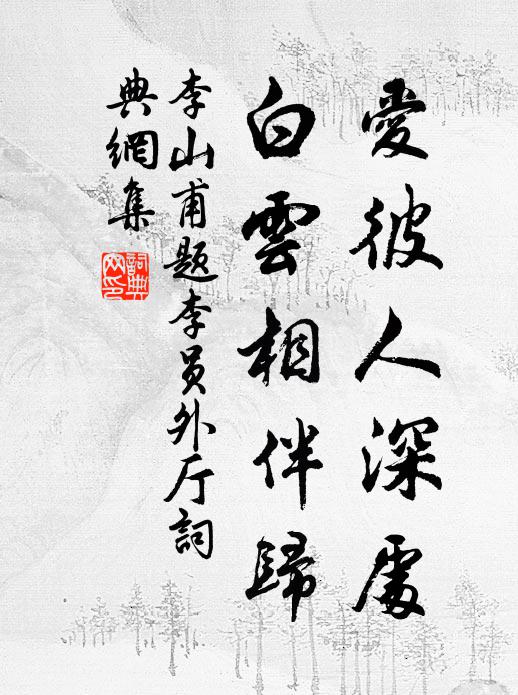 愛彼人深處
白雲相伴歸
李山甫題李員外厅詞
典網集
詞典
网印